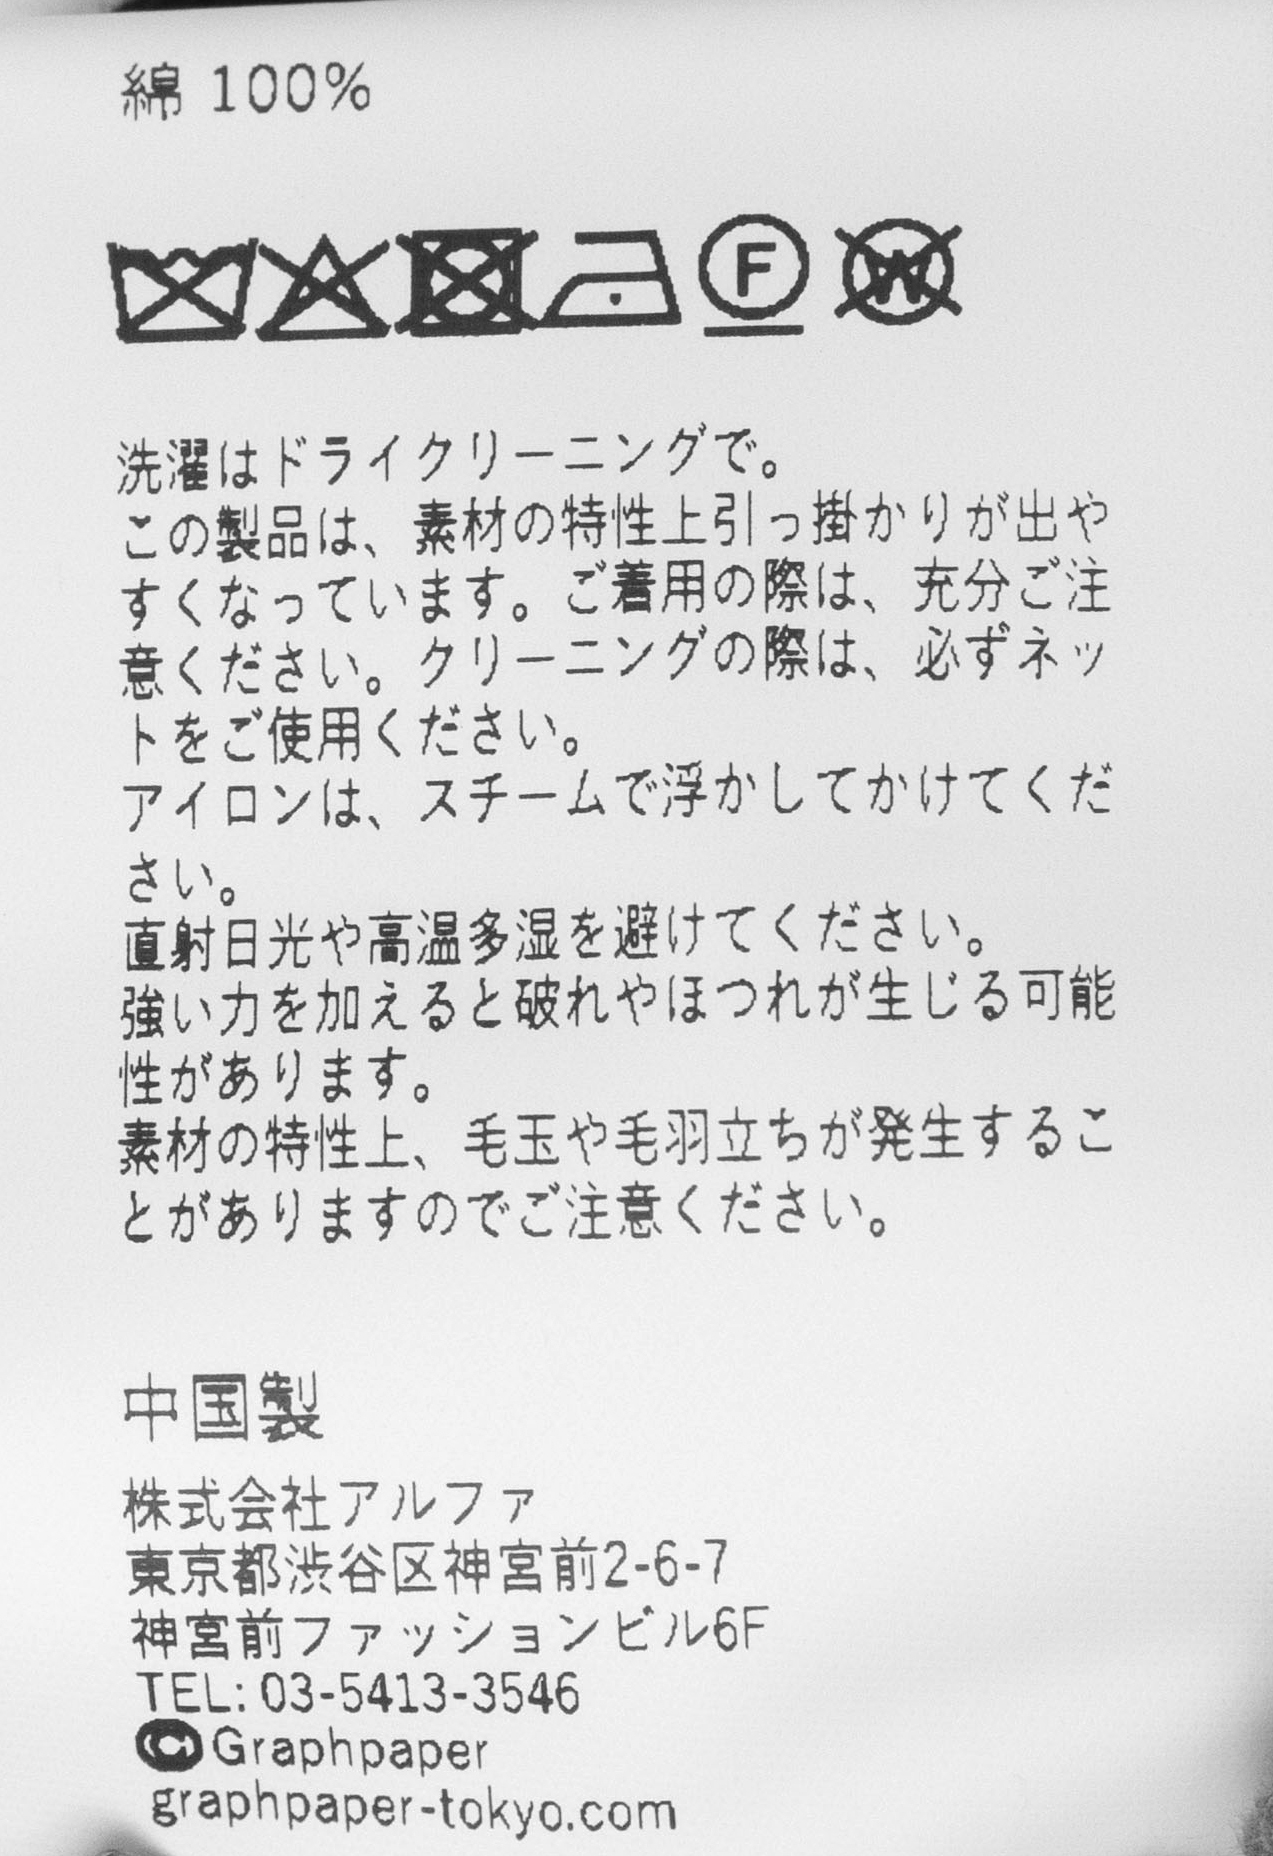 綿 100%
F
W
洗濯はドライクリーニングで。
この製品は、素材の特性上引っ掛かりが出や
すくなっています。ご着用の際は、充分ご注
意ください。クリーニングの際は、必ずネッ
トをご使用ください。
アイロンは、スチームで浮かしてかけてくだ
さい。
直射日光や高温多湿を避けてください。
強い力を加えると破れやほつれが生じる可能
性があります。
素材の特性上、毛玉や毛羽立ちが発生するこ
とがありますのでご注意ください。
中国製
株式会社アルファ
東京都渋谷区神宮前2-6-7
神宮前ファッションビル6F
TEL: 03-5413-3546
©Graphpaper
graphpaper-tokyo.com